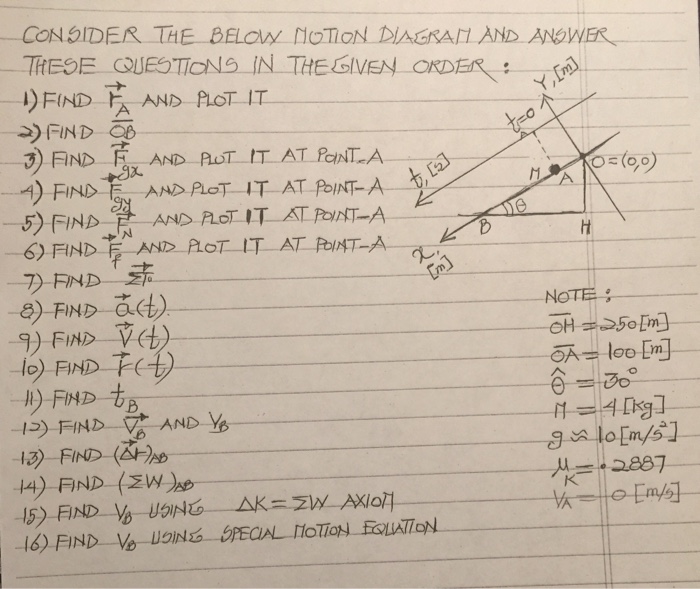 CONSIDER THE BELOW MOTION DIAGRAM AND ANSWER
THESE QUESTIONS IN THE GIVEN ORDER :
1) FIND r⃗_A AND PLOT IT
2) FIND O̅B̅
3) FIND F⃗_gx AND PLOT IT AT POINT-A
4) FIND F⃗_gy AND PLOT IT AT POINT-A
5) FIND F⃗_N AND PLOT IT AT POINT-A
6) FIND F⃗_f AND PLOT IT AT POINT-A
7) FIND ΣF⃗
8) FIND a⃗(t).
9) FIND V⃗(t)
10) FIND r⃗(t)
11) FIND t_B
12) FIND V⃗_B AND V_B
13) FIND (Δ⃗r)_AB
14) FIND (ΣW)_AB
15) FIND V_B USING ΔK = ΣW AXIOM
16) FIND V_B USING SPECIAL MOTION EQUATION
Y, [m]
t=0
t, [s]
O=(0,0)
M
A
θ
B
H
x, [m]
NOTE :
O̅H̅ = 250 [m]
O̅A̅ = 100 [m]
θ̂ = 30°
M = 4 [kg]
g ≈ 10 [m/s²]
μ_K = .2887
V_A = 0 [m/s]